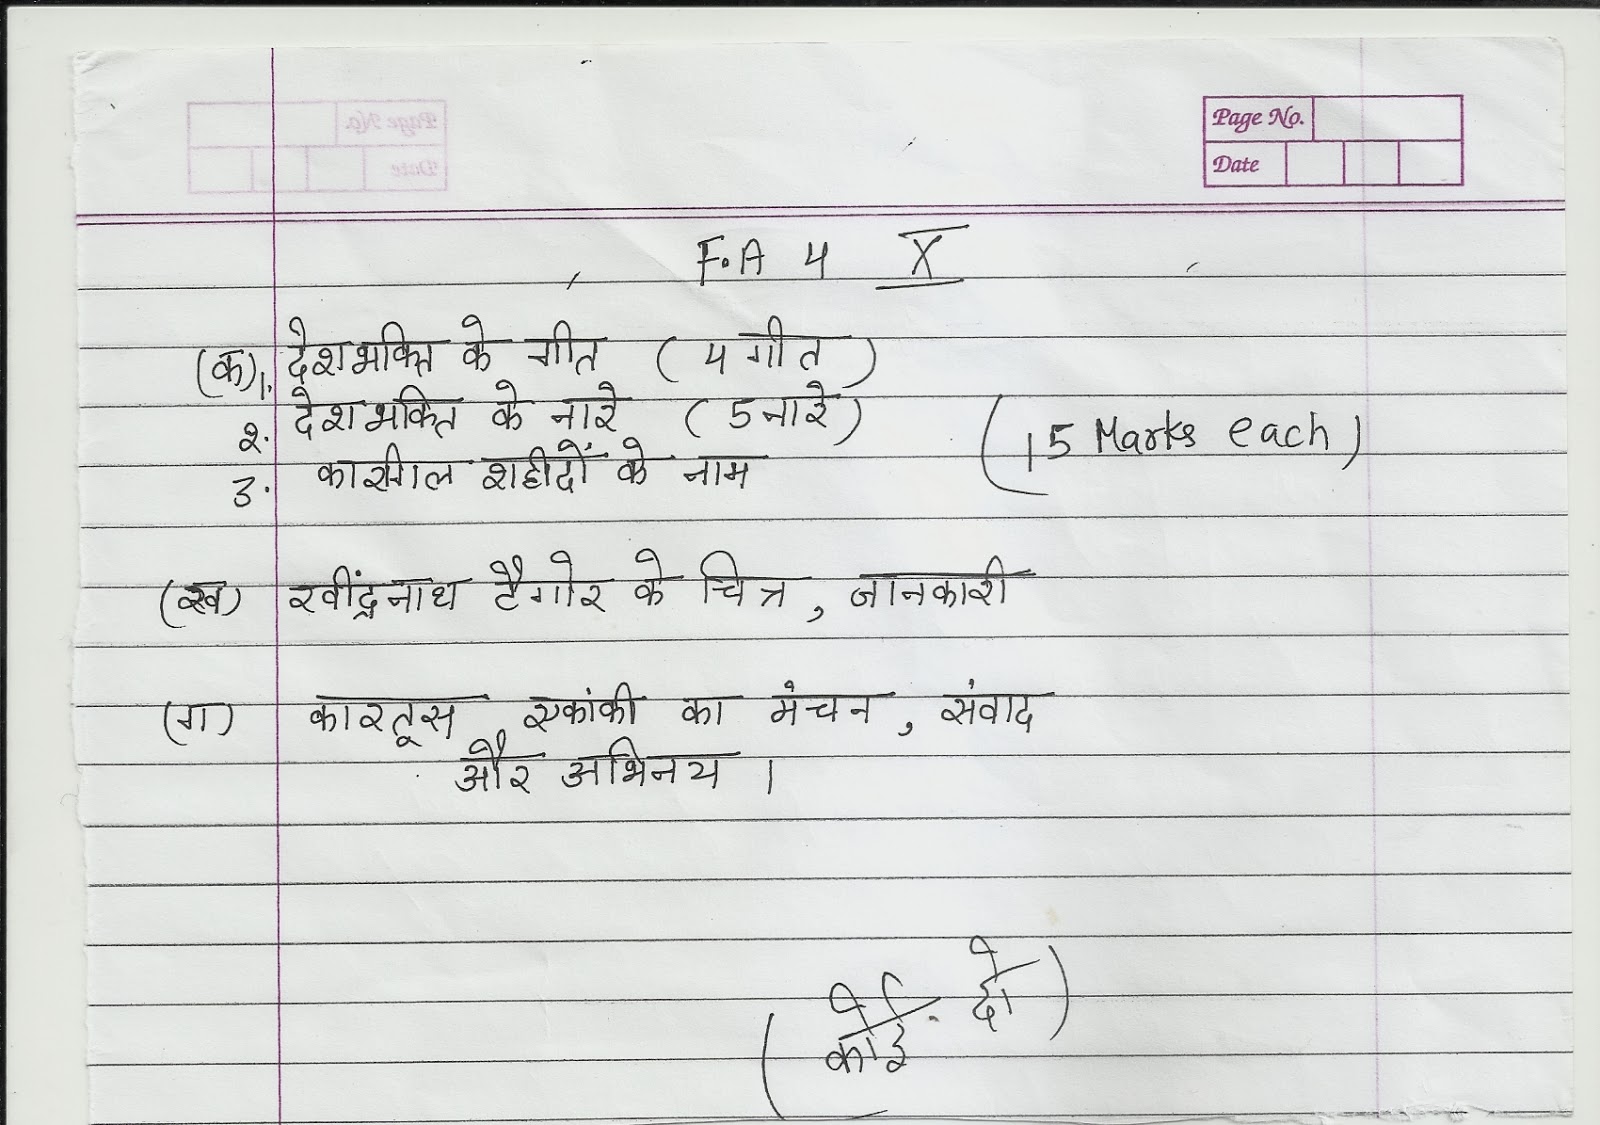 Page No.
Date
F.A 4 X
(क) 1. देशभक्ति के गीत ( 4 गीत )
२. देशभक्ति के नारे ( 5 नारे )
3. कारगिल शहीदों के नाम
(15 Marks each)
(ख) रवींद्रनाथ टैगोर के चित्र, जानकारी
(ग) कारतूस एकांकी का मंचन, संवाद
और अभिनय ।
( कोई दो )